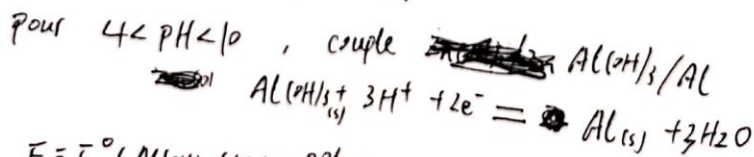 pour 4 < pH < 10 , couple Al(OH)3/Al
Al(OH)3(s) + 3H+ + 2e- = Al(s) + 3H2O
E = E°(